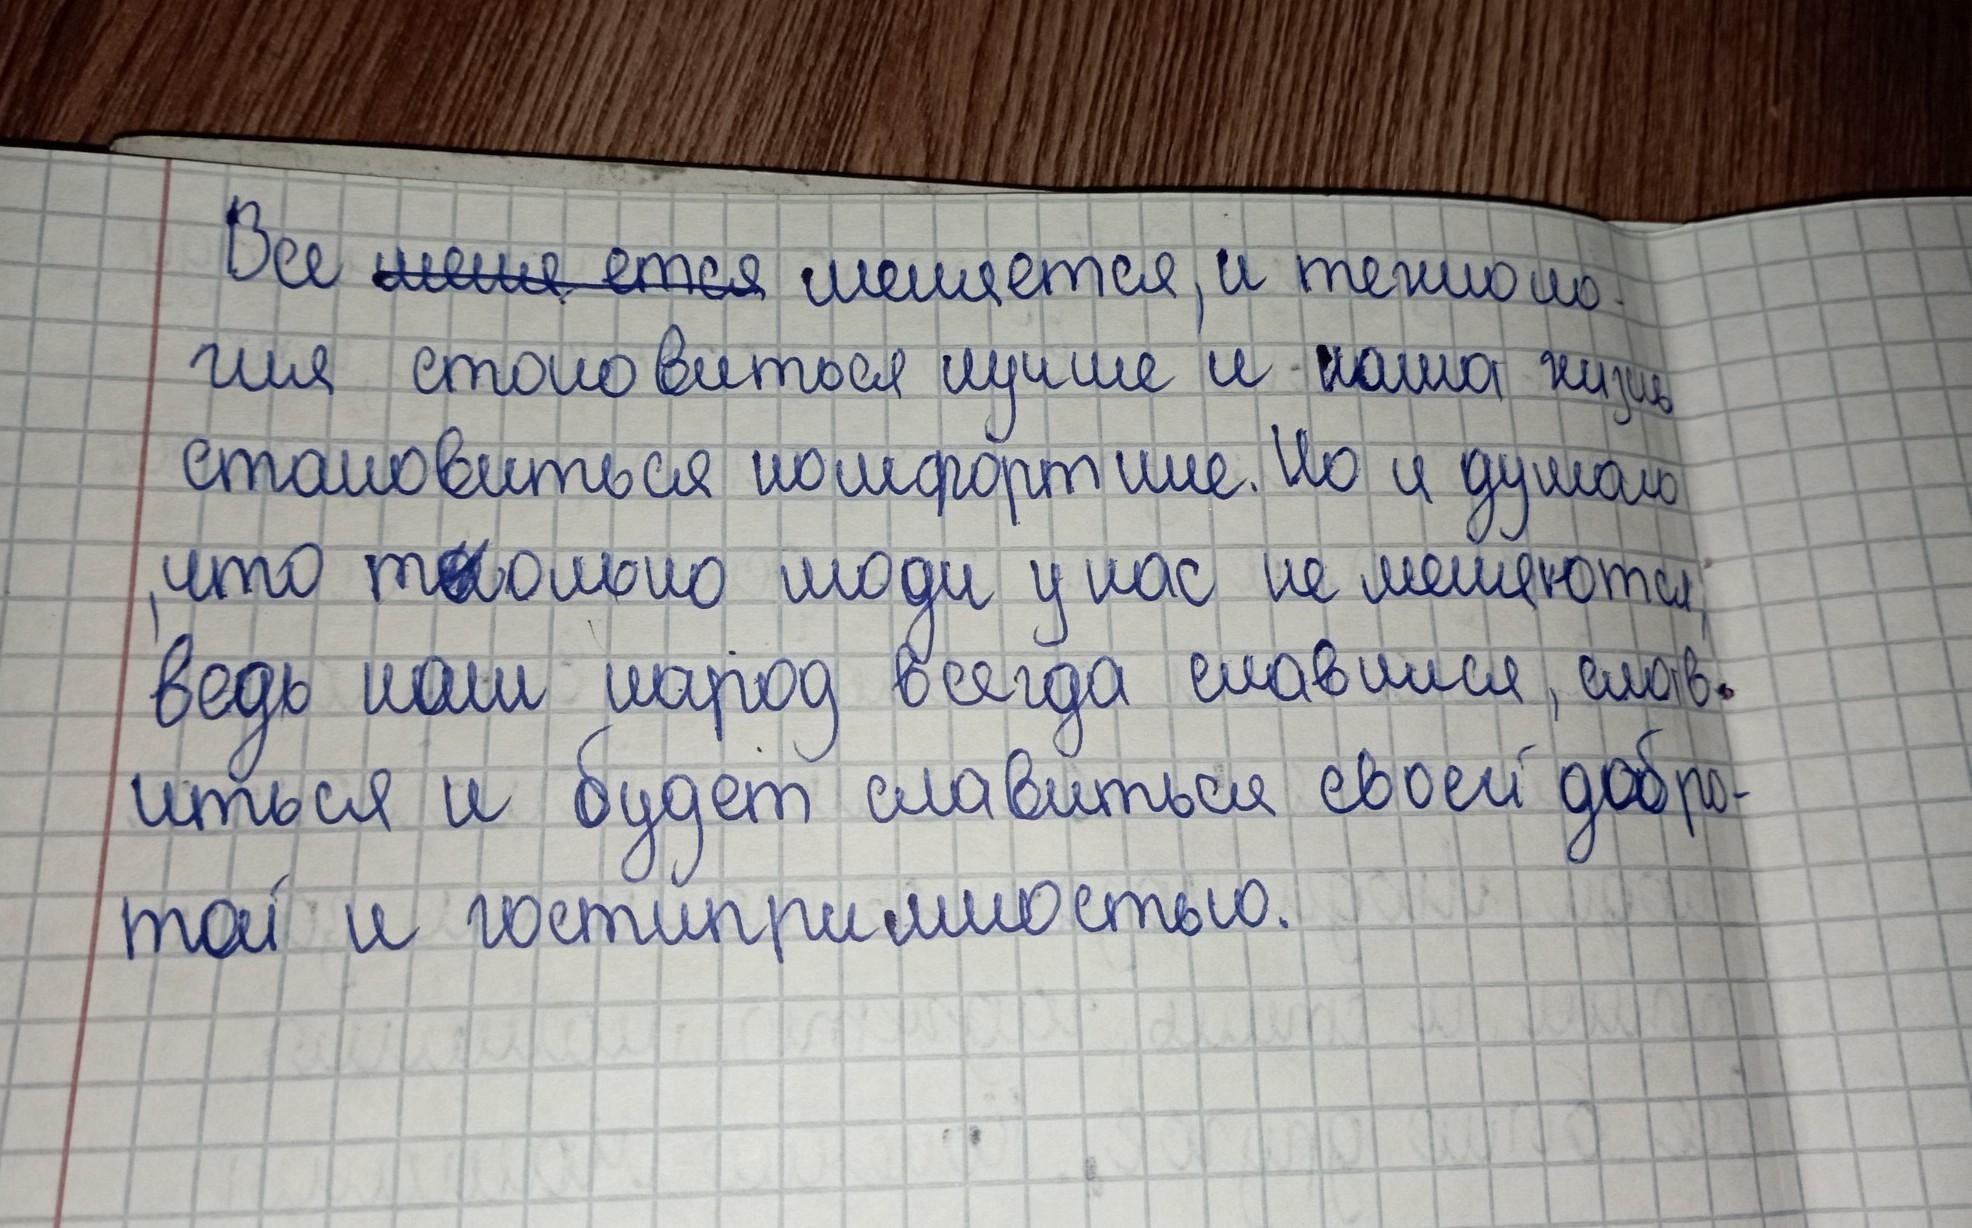 Все меняется меняется, и техноло-
гия становиться лучше и наша жизнь
становиться комфортнее. Но я думаю
,что только люди у нас не меняются,
ведь наш народ всегда славился, слав-
иться и будет славиться своей добро-
той и гостиприимностью.